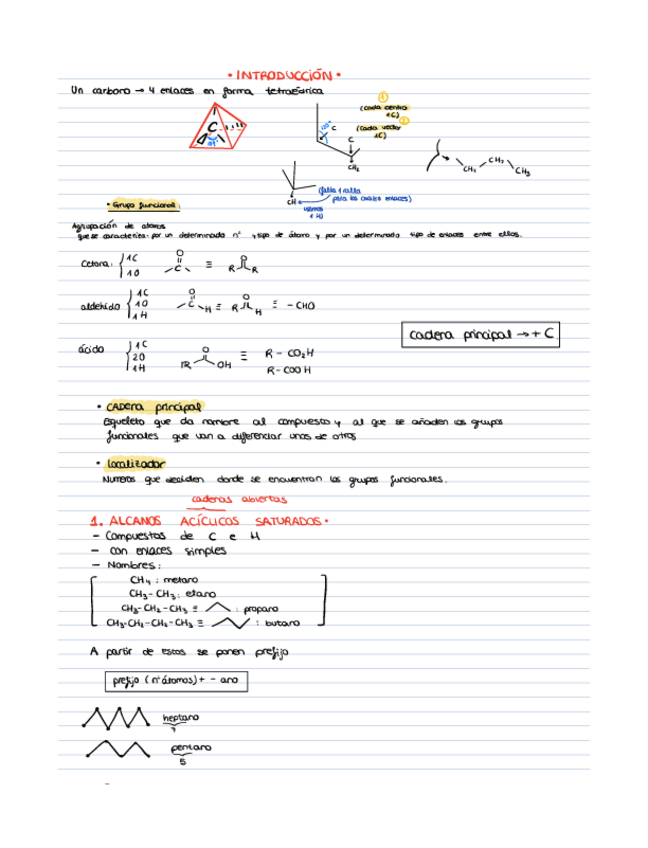 • INTRODUCCIÓN •
Un carbono → 4 enlaces en forma tetraédrica
C
1
(cada centro
1C)
2
(cada vector
1C)
120°
C
C
CH2
CH2
CH2
CH3
(falta 1 raya
para los cuatro enlaces)
CH
vemos
1 H)
• Grupo funcional:
Agrupación de átomos
que se caracteriza por un determinado nº y tipo de átomo y por un determinado tipo de enlaces entre ellos.
Cetona: { 1C
1O
O
C ≡ R R
O
aldehído { 1C
1O
1H
O
C H ≡ R H ≡ - CHO
O
cadena principal → + C
ácido { 1C
2O
1H
O
R OH ≡ R - CO2H
R - COOH
• CADENA principal
Esqueleto que da nombre al compuesto y al que se añaden los grupos
funcionales que van a diferenciar unos de otros
• Localizador
Números que deciden donde se encuentran los grupos funcionales.
cadenas abiertas
1. ALCANOS ACÍCLICOS SATURADOS •
- Compuestos de C e H
- con enlaces simples
- Nombres:
CH4 : metano
CH3 - CH3 : etano
CH3 - CH2 - CH3 ≡ : propano
CH3-CH2-CH2-CH3 ≡ : butano
A partir de estos se ponen prefijo
prefijo (nº átomos) + - ano
heptano
7
pentano
5